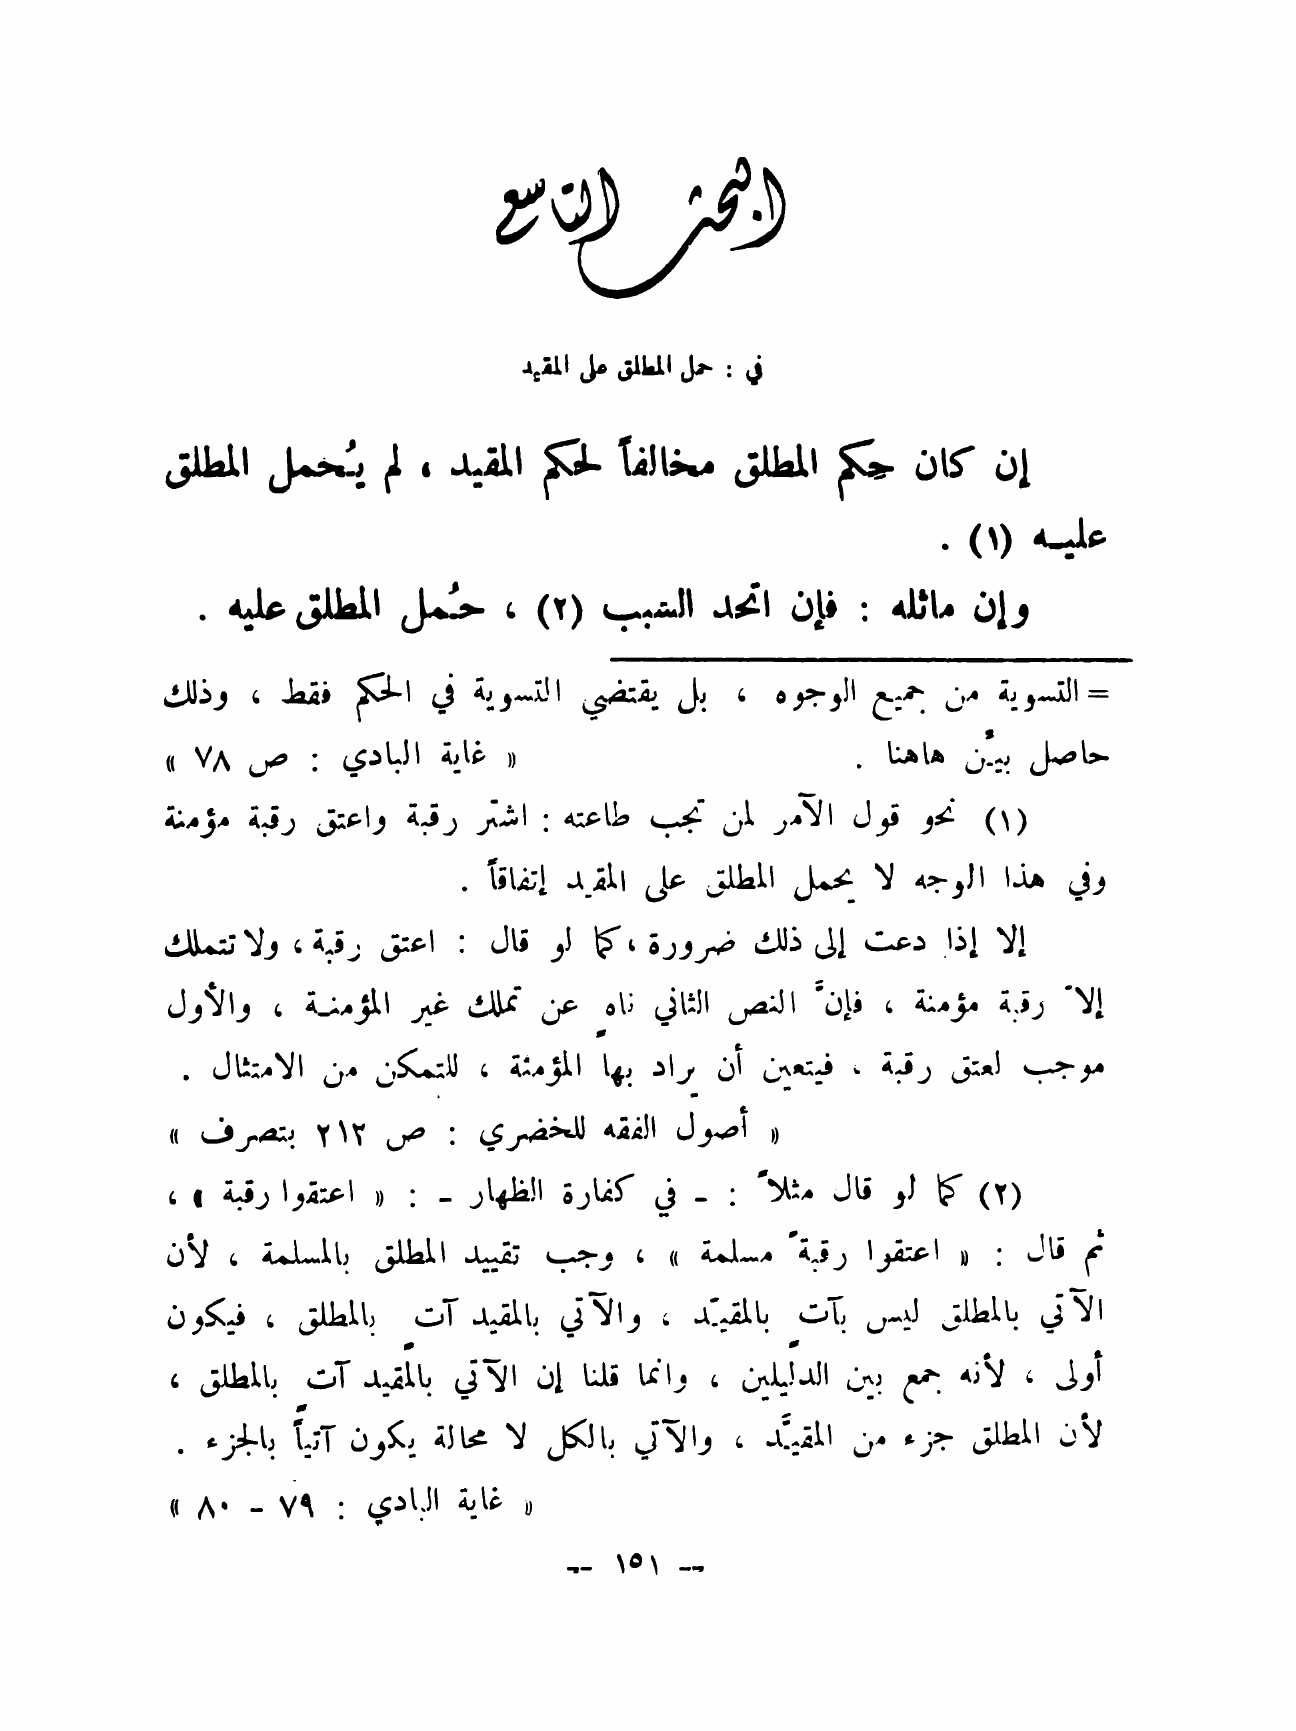 البحث التاسع
في : حمل المطلق على المقيد
إن كان حكم المطلق مخالفاً لحكم المقيد ، لم يُحمل المطلق
عليه (١) .
وإن ماثله : فإن اتحد السبب (٢) ، حُمل المطلق عليه .
= التسوية من جميع الوجوه ، بل يقتضي التسوية في الحكم فقط ، وذلك
حاصل بيّن هاهنا . « غاية البادي : ص ٧٨ »
(١) نحو قول الآمر لمن تجب طاعته : اشتر رقبة واعتق رقبة مؤمنة
وفي هذا الوجه لا يحمل المطلق على المقيد إتفاقاً .
إلا إذا دعت إلى ذلك ضرورة ، كما لو قال : اعتق رقبة ، ولا تتملك
إلاّ رقبة مؤمنة ، فإنَّ النص الثاني ناهٍ عن تملك غير المؤمنة ، والأول
موجب لعتق رقبة ، فيتعين أن يراد بها المؤمنة ، للتمكن من الامتثال .
« أصول الفقه للخضري : ص ٢١٢ بتصرف »
(٢) كما لو قال مثلاً : - في كفارة الظهار - : « اعتقوا رقبة » ،
ثم قال : « اعتقوا رقبةً مسلمة » ، وجب تقييد المطلق بالمسلمة ، لأن
الآتي بالمطلق ليس بآتٍ بالمقيّد ، والآتي بالمقيد آتٍ بالمطلق ، فيكون
أولى ، لأنه جمع بين الدليلين ، وانما قلنا إن الآتي بالمقيد آتٍ بالمطلق ،
لأن المطلق جزء من المقيَّد ، والآتي بالكل لا محالة يكون آتياً بالجزء .
« غاية البادي : ٧٩ - ٨٠ »
-- ١٥١ --